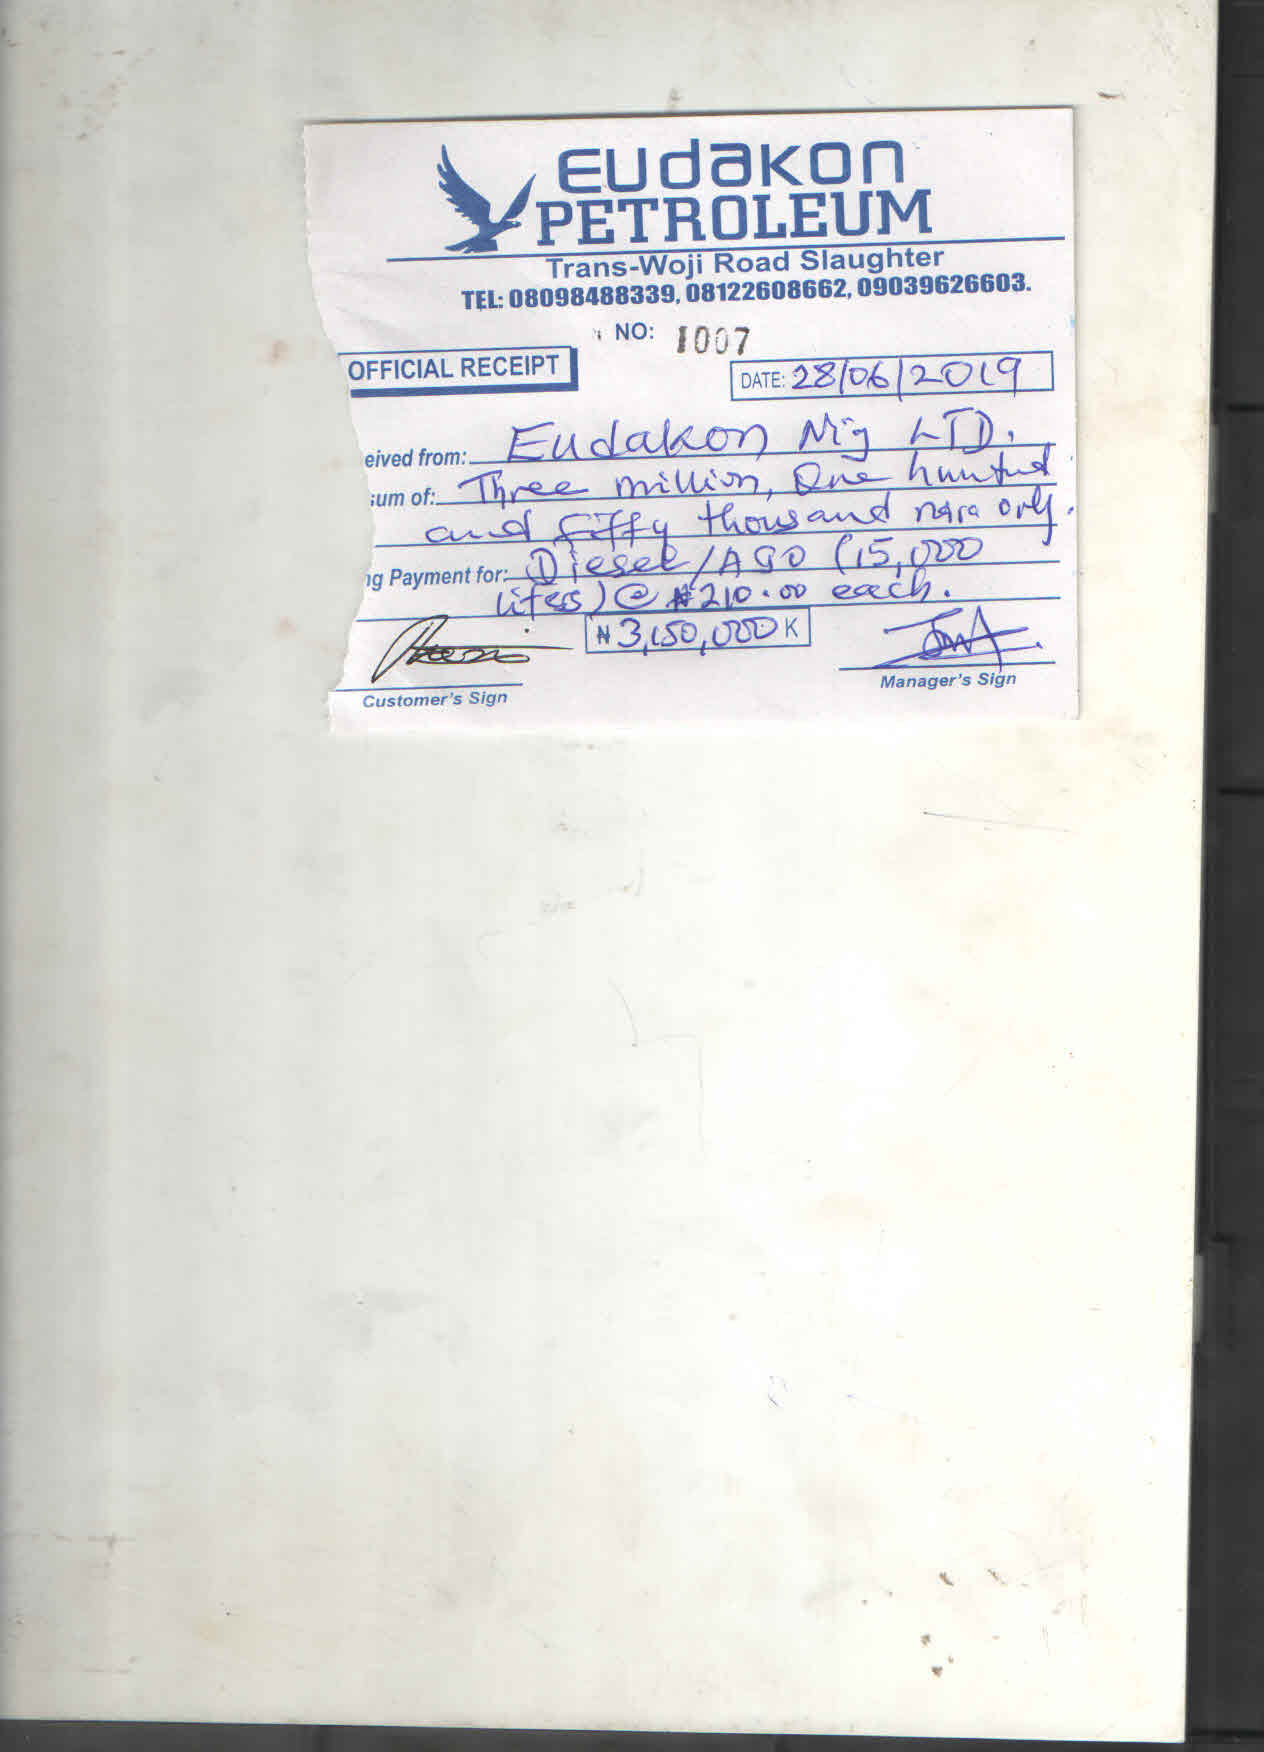 EUdaKON
PETROLEUM
Trans-Woji Road Slaughter
TEL: 08098488339, 08122608662, 09039626603.
NO: 1007
OFFICIAL RECEIPT
DATE: 28/06/2019
eived from: Eudakon Nig LTD.
sum of: Three million, One hundred
and fifty thousand naira only.
ng Payment for: Diesel/AGO (15,000
liters) @ ₦210.00 each.
₦ 3,150,000 K
Customer's Sign
Manager's Sign